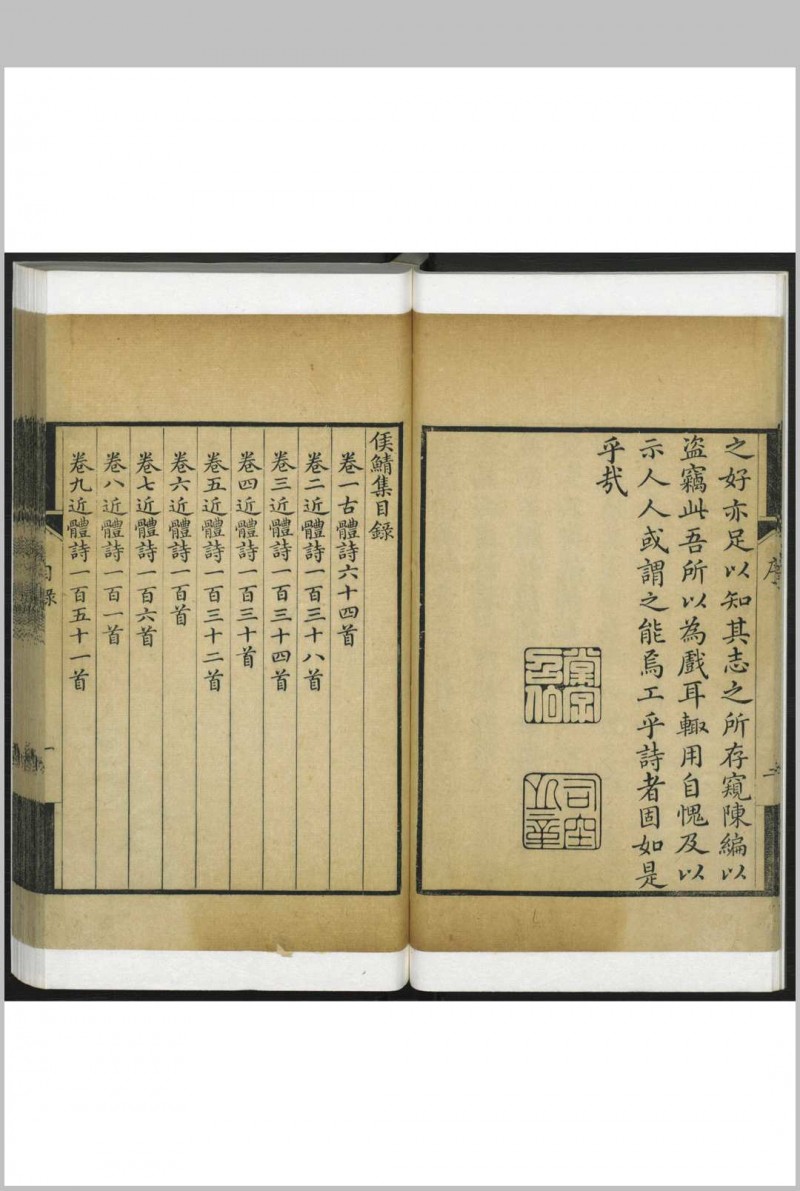 之好亦足以知其志之所存窺陳編以
盜竊此吾所以為戲耳輙用自愧及以
示人人或謂之能焉工乎詩者固如是
乎哉
司空
之章
序
二
侯鯖集目錄
卷一古體詩六十四首
卷二近體詩一百三十八首
卷三近體詩一百三十四首
卷四近體詩一百三十首
卷五近體詩一百三十二首
卷六近體詩一百首
卷七近體詩一百六首
卷八近體詩一百一首
卷九近體詩一百五十一首
目錄
一